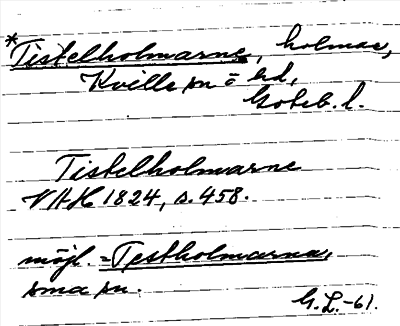 *Tistelholmarne, holmar,
Kville sn o hd,
Göteb. l.
Tistelholmarne
VAH 1824, s. 458.
möjl. = Testholmarna,
sma sn.
G.L.-61.